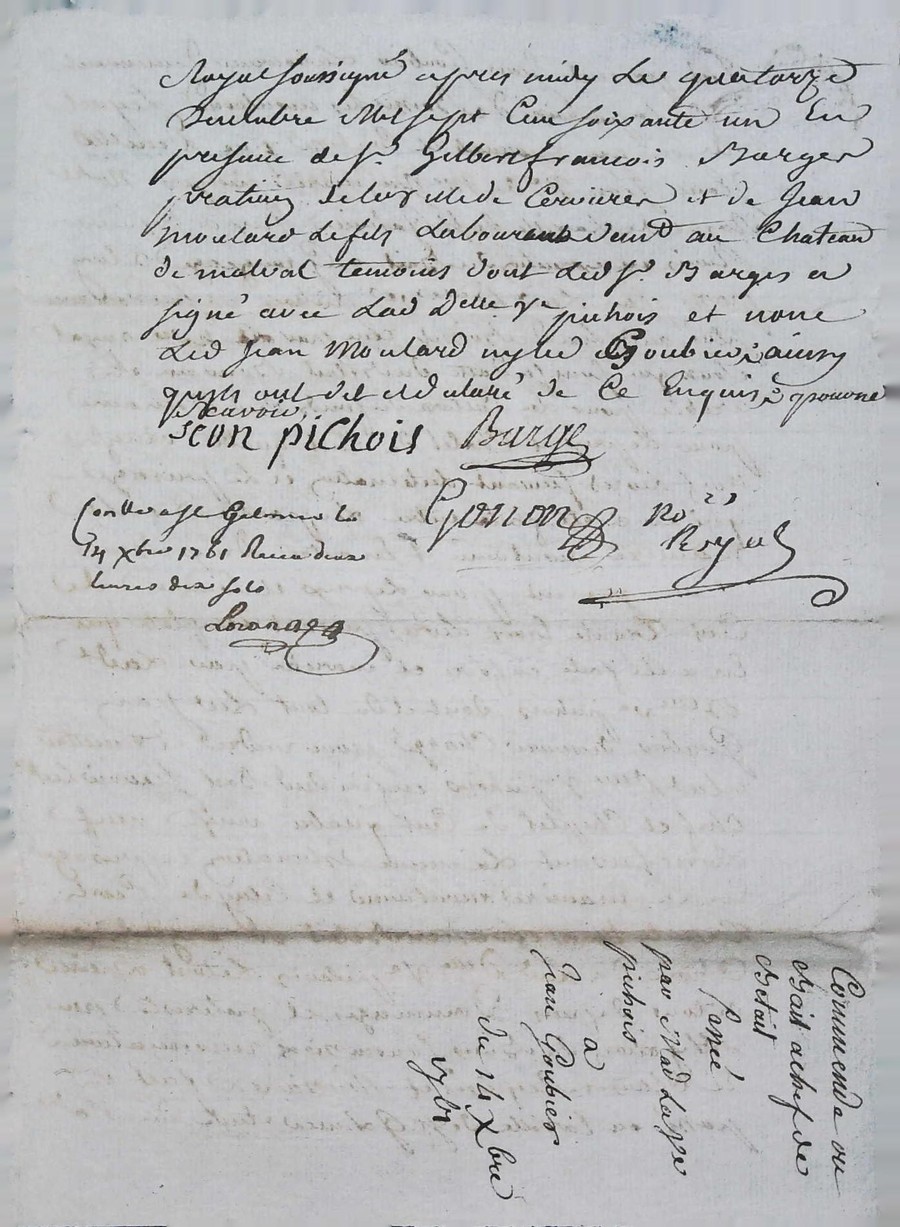 Royal soussigné apres midy Le quatorze
Decembre Mil sept Cens soixante un En
presence de Sr. Gilbert francois Barge
praticien de la ville de Cervieres et de Jean
Moulard le fils Laboureur demt au Chateau
de malval temoins dont Led Sr. Barges a
signé avec Lad Delle. Ve pichois et none
Led Jean Moulard ny led Goubier, ainsy
quils ont dit et declaré de Ce Enquis
scavoir
Jean pichois Barge
Gonon no re
Royal
Controllé a St Germain le
14 xbre 1761 Receu deux
livres dix sols
Commende ou
Bail a chef de
Betail
passé
par Mad La Ve
pichois
a
Jean Goubier
du 14 Xbre